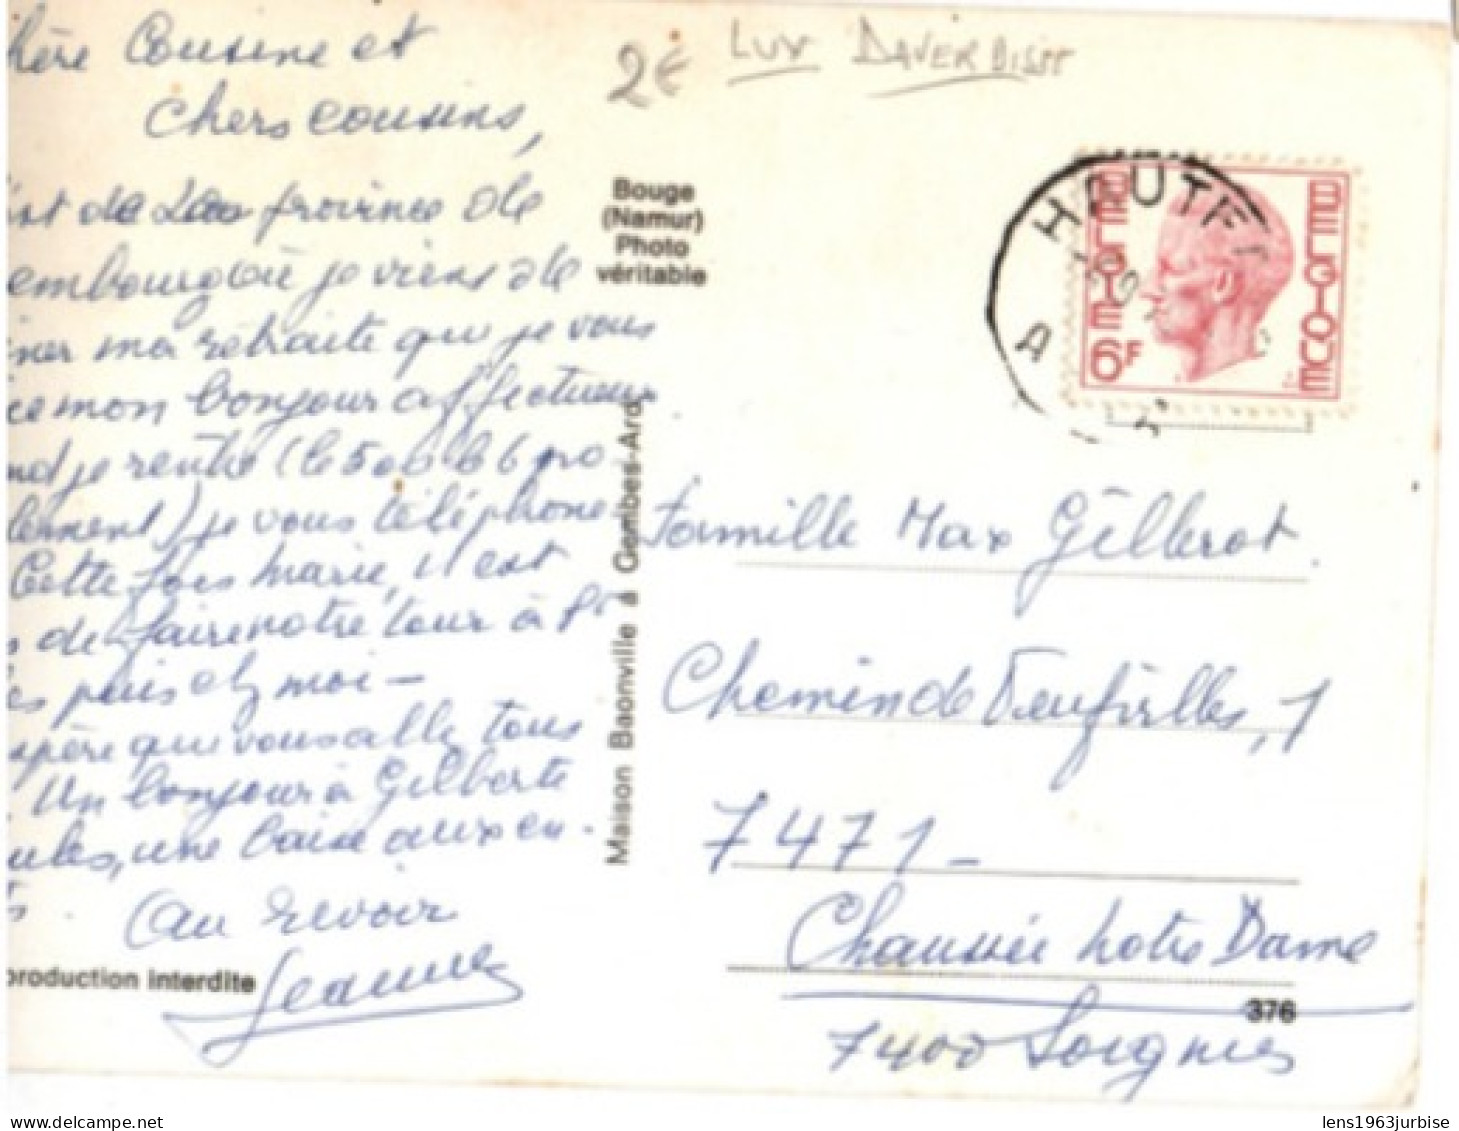 hère Cousine et
chers cousins,
de La province de
embourg où je viens de
iner ma retraite que je vous
mon bonjour affectueux
nd je rentre (le 5 ou le 6 pro
blement) je vous téléphone
Cette fois Marie, il est
de faire notre tour à
es puis chez moi -
spère que vous allez tous
Un bonjour à Gilberte
ules, une baise aux en-
ts.
au revoir
Jeanne
production interdite
2€ LUX DAVERDISSE
Bouge
(Namur)
Photo
véritable
Maison Baonville à Gembes-Ard.
HAUTF
A
BELGIE BELGIQUE
6F
Famille Max Gillerot.
Chemin de Neufvilles, 1
7471 -
Chaussée Notre Dame
376
7400 Soignies
lens1963jurbise